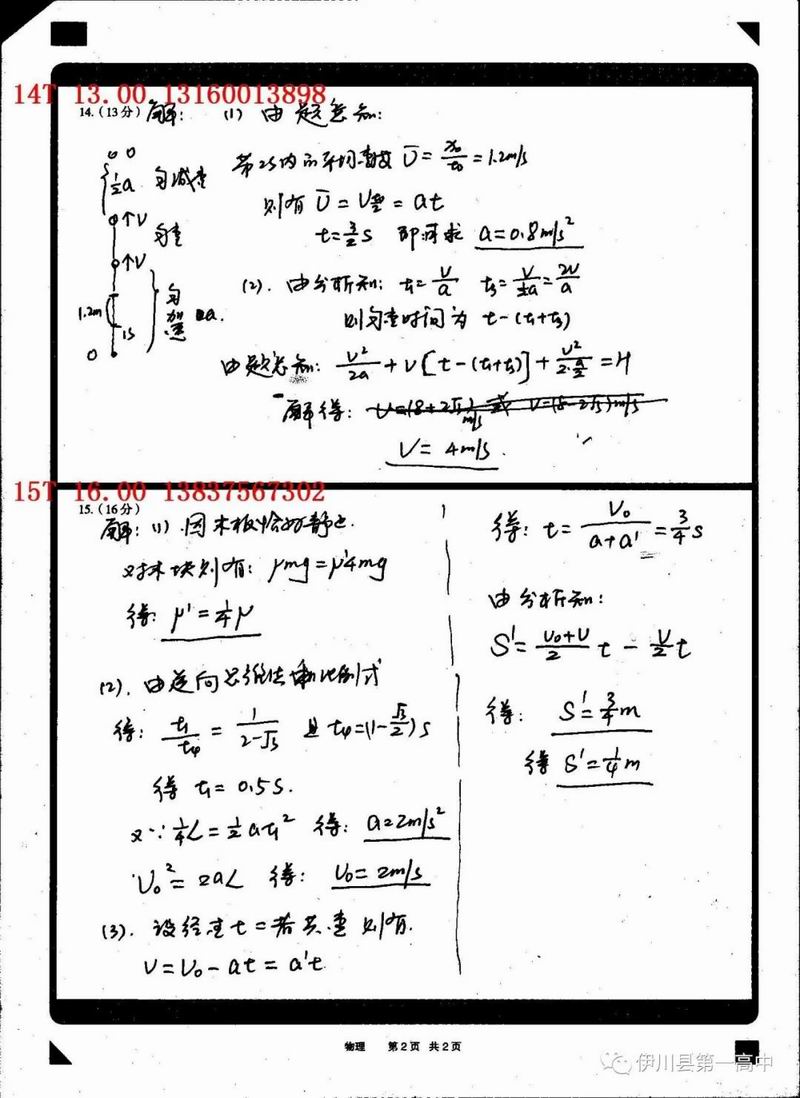 14T 13.00 13160013898
14.(13分) 解: (1) 由题意知:
第2s内的平均速度 ῡ = x₀/t₀ = 1.2m/s
则有 ῡ = V = at
t = 3/2 s 即可求 a = 0.8m/s²
½a 匀减速
↑V
匀速
↑V
1.2m
1s
匀加速 a.
0
(2). 由分析知: t₁ = V/a t₃ = V/½a = 2V/a
则匀速时间为 t-(t₁+t₃)
由题意知: V²/2a + V[t-(t₁+t₃)] + V²/2·a/2 = H
解得: V=(8+2√3)m/s 或 V=(8-2√3)m/s
V = 4m/s.
15T 16.00 13837567302
15.(16分)
解: (1) 因木板恰好静止.
对木块则有: μmg = μ'4mg
得: μ' = ¼μ
(2). 由逆向思维法和比例式
得: t₁/t₄ = 1/2-√3 且 t₄ = (1-√3/2)s
得 t₁ = 0.5s.
又∵ ¼L = ½at₁² 得: a = 2m/s²
V₀² = 2aL 得: V₀ = 2m/s
(3). 设经过t=者共速 则有.
V = V₀ - at = a't
得: t = V₀/a+a' = 3/4 s
由分析知:
S' = V₀+V/2 t - V/2 t
得: S' = 3/4 m
得 S' = ¼m
物理 第2页 共2页
伊川县第一高中